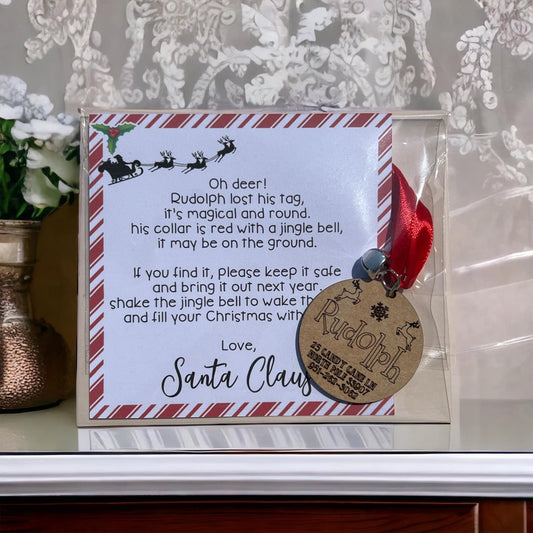 Oh deer!
Rudolph lost his tag,
it's magical and round.
his collar is red with a jingle bell,
it may be on the ground.
If you find it, please keep it safe
and bring it out next year.
shake the jingle bell to wake
and fill your Christmas with
Love,
Santa Claus
Rudolph
25 CANDY CANE LN
NORTH POLE